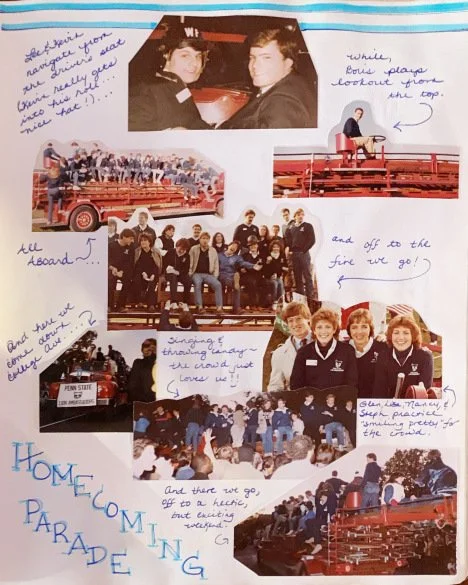 Lee & Kevin
navigate from
the driver's seat
(Kevin really gets
into his roll...
nice hat!)...
WF
While,
Boris plays
lookout from
the top.
All
Aboard~...
and off to the
fire we go!
And here we
come down
College Ave....
Singing &
throwing candy~
the crowd just
loves us!!
PENN STATE
LION AMBASSADORS
Glen, Lisa, Nancy, &
Steph practice
"smiling pretty" for
the crowd.
And there we go,
off to a hectic,
but exciting
weekend.
HOMECOMING
PARADE